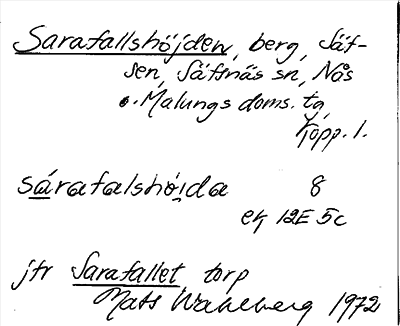 Sarafallshöjden, berg, Säf-
sen, Säfsnäs sn, Nås
o. Malungs doms. tg,
Kopp. l.
sárafalshöjda 8
ek 12E 5c
jfr Sarafallet, torp
Mats Wahlberg 1972